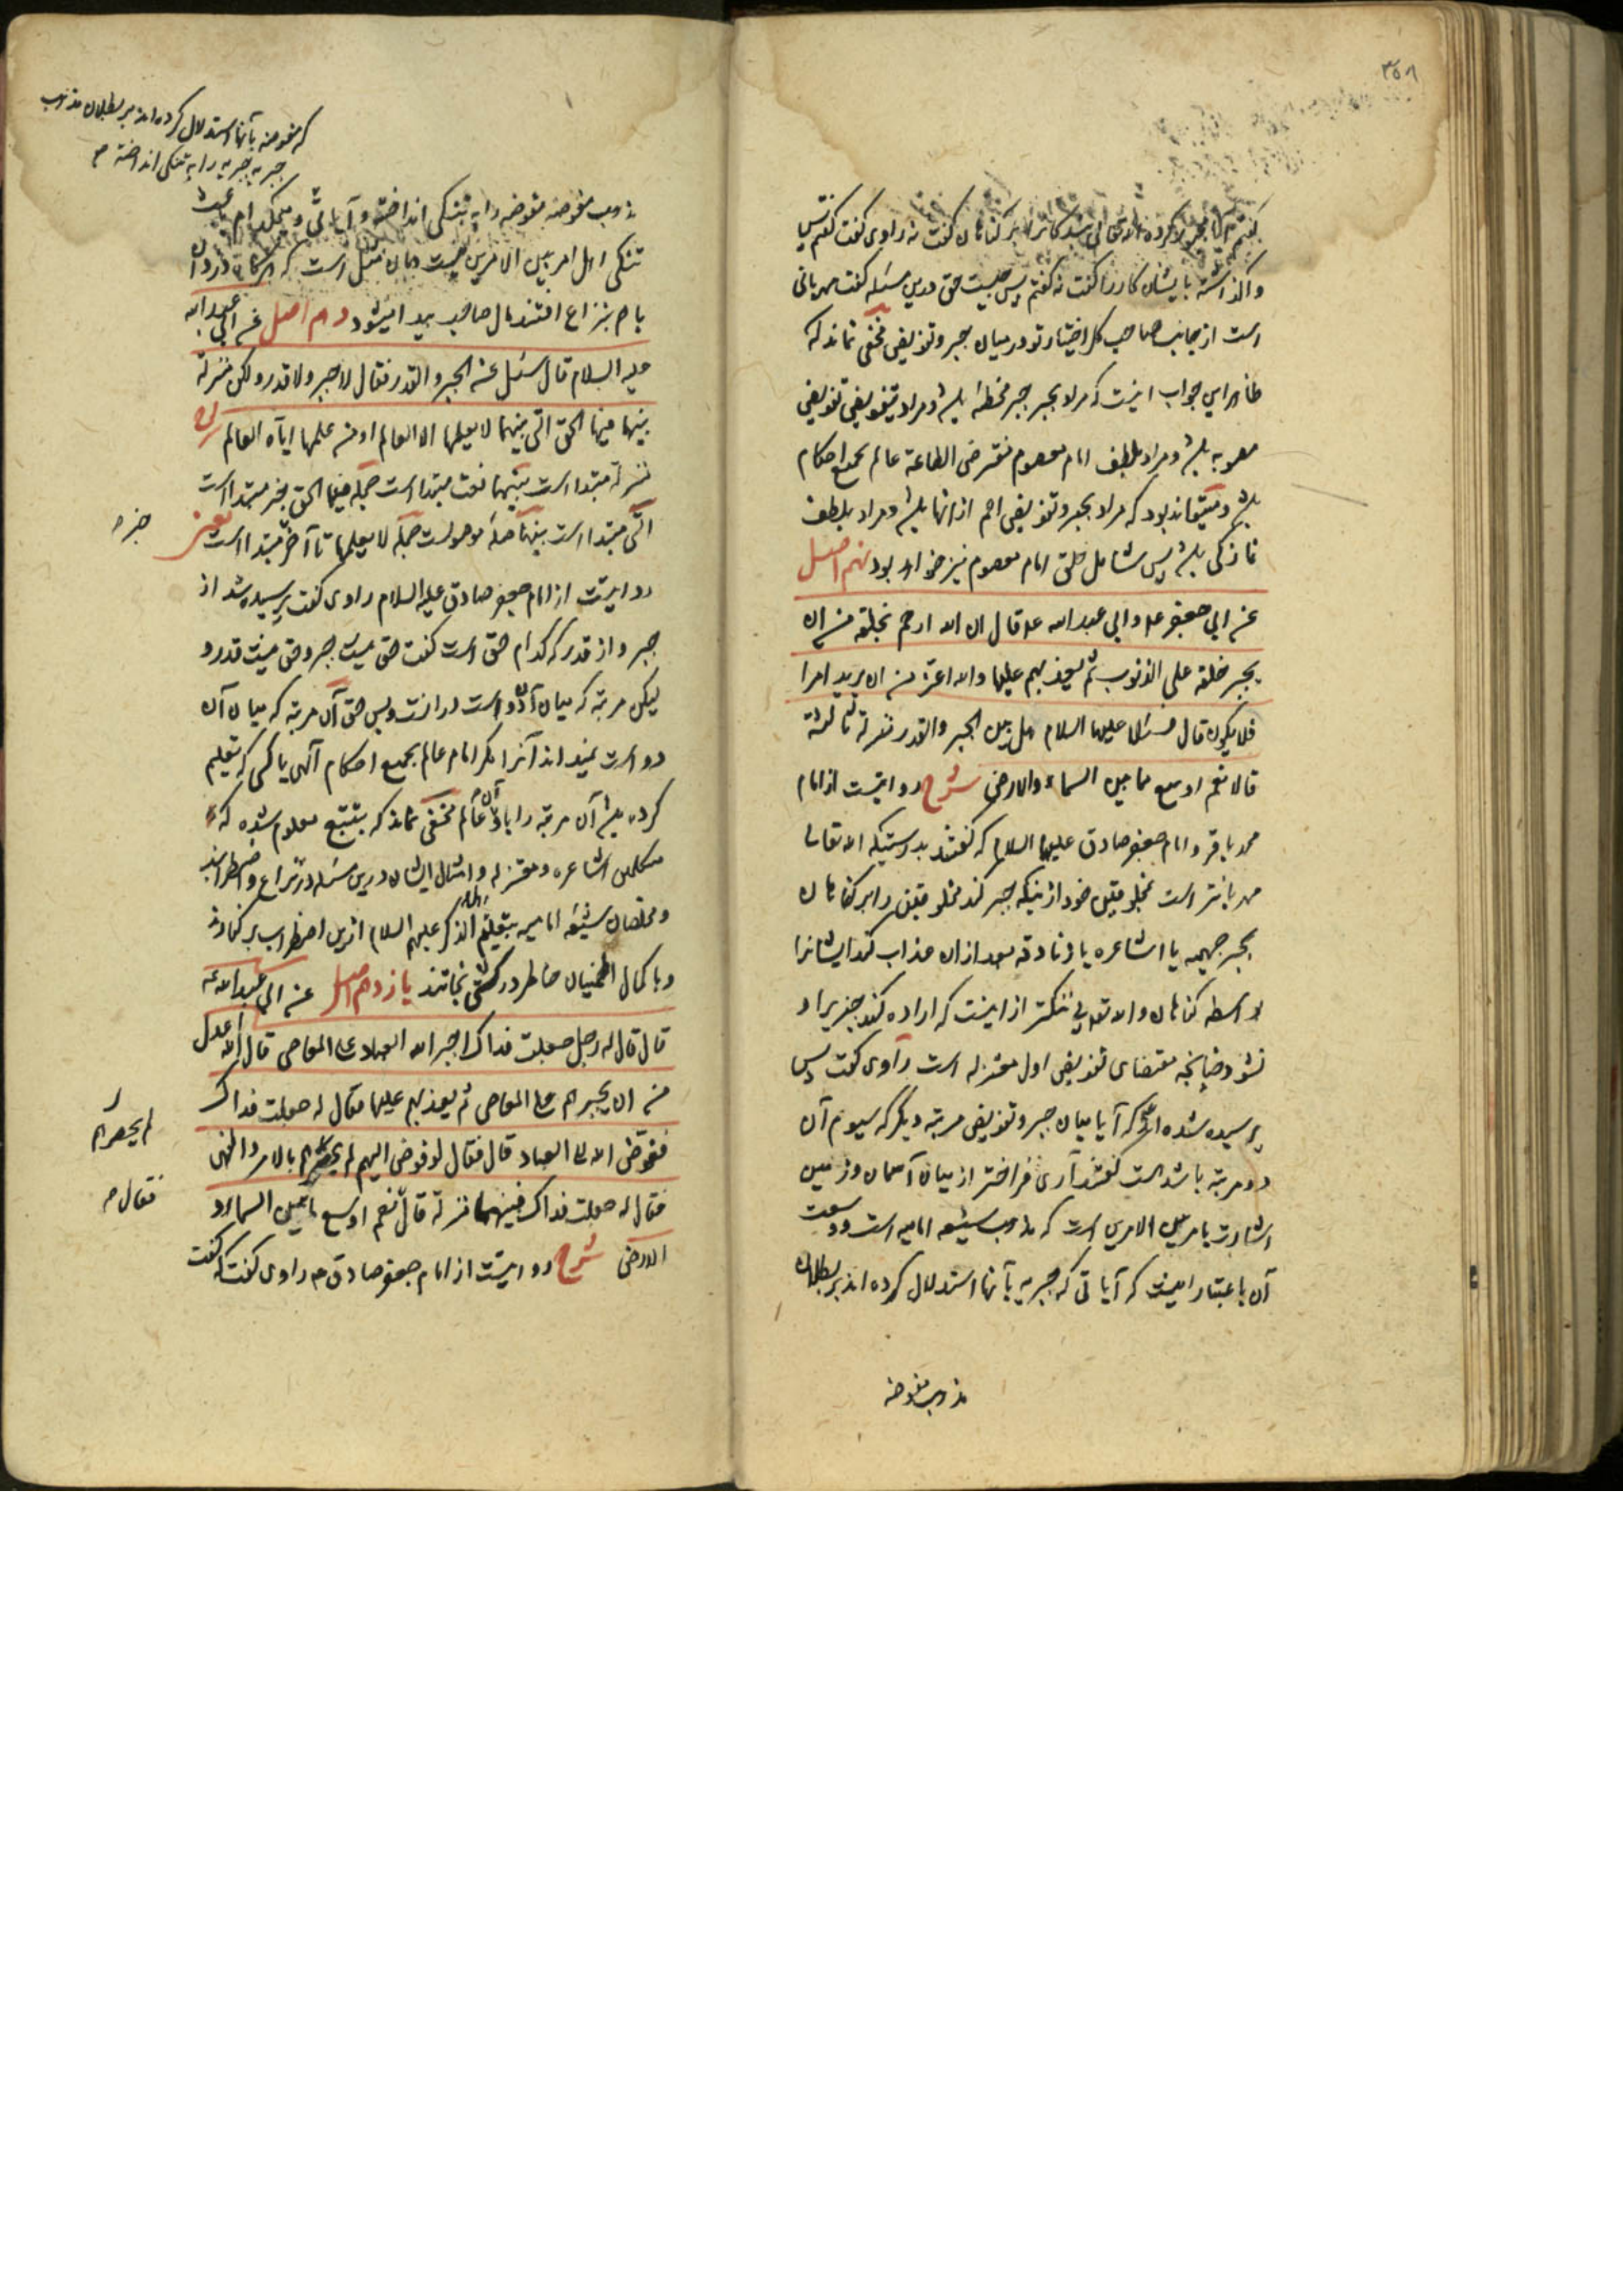 ۳۵۸
گفتم آیا مجبور کرده الله تعالی بندگانرا بر گناهان گفت نه راوی گفت گفتم پس
واگذاشته بایشان کار را گفت نه گفتم پس چیست حق درین مسئله گفت مهربانی
است از جانب صاحب کل اختیار تو در میان جبر و تفویض مخفی نماند که
ظاهر این جواب اینست که مراد بجبر جبر مخطئه باشد و مراد بتفویض تفویض
مصوبه باشد و مراد بلطف امام معصوم مفترض الطاعة عالم بجمیع احکام
باشد و میتواند بود که مراد بجبر و تفویض اعم از انها باشد و مراد بلطف
نازکی باشد پس شامل خلق امام معصوم نیز خواهد بود نهم اصل
عن ابی جعفر ع و ابی عبد الله ع قال ان الله ارحم بخلقه من ان
یجبر خلقه علی الذنوب ثم یعذبهم علیها والله اعز من ان یرید امرا
فلا یکون قال فسئلا علیهما السلام هل بین الجبر والقدر منزلة ثالثة
قالا نعم اوسع مما بین السماء والارض شرح روایتست از امام
محمد باقر و امام جعفر صادق علیهما السلام که گفتند بدرستیکه الله تعالی
مهربانتر است بمخلوقین خود از اینکه جبر کند مخلوقین را بر گناهان
بجبر جهمیه یا اشاعره یا زنادقه بعد از ان عذاب کند ایشانرا
بواسطه گناهان والله تعالی بی ننگتر از اینست که اراده کند چیزیرا و
نشود چنانچه مقتضای تفویض اول معتزله است راوی گفت پس
پرسیده شدند که آیا میان جبر و تفویض مرتبه دیگر که سیوم آن
دو مرتبه باشد هست گفتند آری فراختر از میان آسمان و زمین
اشارت بامر بین الامرین است که مذهب شیعه امامیه است و وسعت
آن باعتبار اینست که آیاتی که جبریه بآنها استدلال کرده اند بر بطلان
مذهب مفوضه
که مفوضه بآنها استدلال کرده اند بر بطلان مذهب
جبریه جبریه را به تنگی انداخته
مذهب مفوضه مفوضه را به تنگی انداخته و آیاتی و هیچکدام باعث
تنگی اهل امر بین الامرین نیست و همان مثل است که هرگاه دزدان
باهم بنزاع افتند مال صاحب پیدا میشود دهم اصل عن ابی عبد الله
علیه السلام قال سئل عن الجبر والقدر فقال لا جبر ولا قدر ولکن منزلة
بینهما فیها الحق التی بینهما لا یعلمها الا العالم او من علمها ایاه العالم شرح
منزلة مبتداست بینهما نعت مبتداست جمله فیها الحق خبر مبتداست
التی مبتداست بینهما صله موصولست جمله لا یعلمها تا آخر خبر مبتداست یعنی
روایتست از امام جعفر صادق علیه السلام راوی گفت پرسیده شد از
جبر و از قدر که کدام حق است گفت حق نیست جبر و حق نیست قدر و
لیکن مرتبه که میان آن دو است در انست و بس حق آن مرتبه که میان آن
دو است نمیداند آنرا مگر امام عالم بجمیع احکام الهی یا کسی که تعلیم
کرده باشد آن مرتبه را باو آن عالم مخفی نماند که بتتبع معلوم شده که
متکلمین اشاعره و معتزله و امثال ایشان درین مسئله در نزاع و اضطرابند
و مخلصان شیعه امامیه بتعلیم اهل الذکر علیهم السلام ازین اضطراب برکنارند
و با کمال اطمینان خاطر در کشتی نجاتند یازدهم اصل عن ابی عبد الله ع
قال قال له رجل جعلت فداک اجبر الله العباد علی المعاصی قال الله اعدل
من ان یجبرهم علی المعاصی ثم یعذبهم علیها فقال له جعلت فداک
ففوض الله الی العباد قال فقال لو فوض الیهم لم یحصرهم بالامر والنهی
فقال له جعلت فداک فبینهما منزلة قال نعم اوسع ما بین السماء و
الارض شرح روایتست از امام جعفر صادق ع راوی گفت که گفت
خبر
لم یحصرهم
فقال